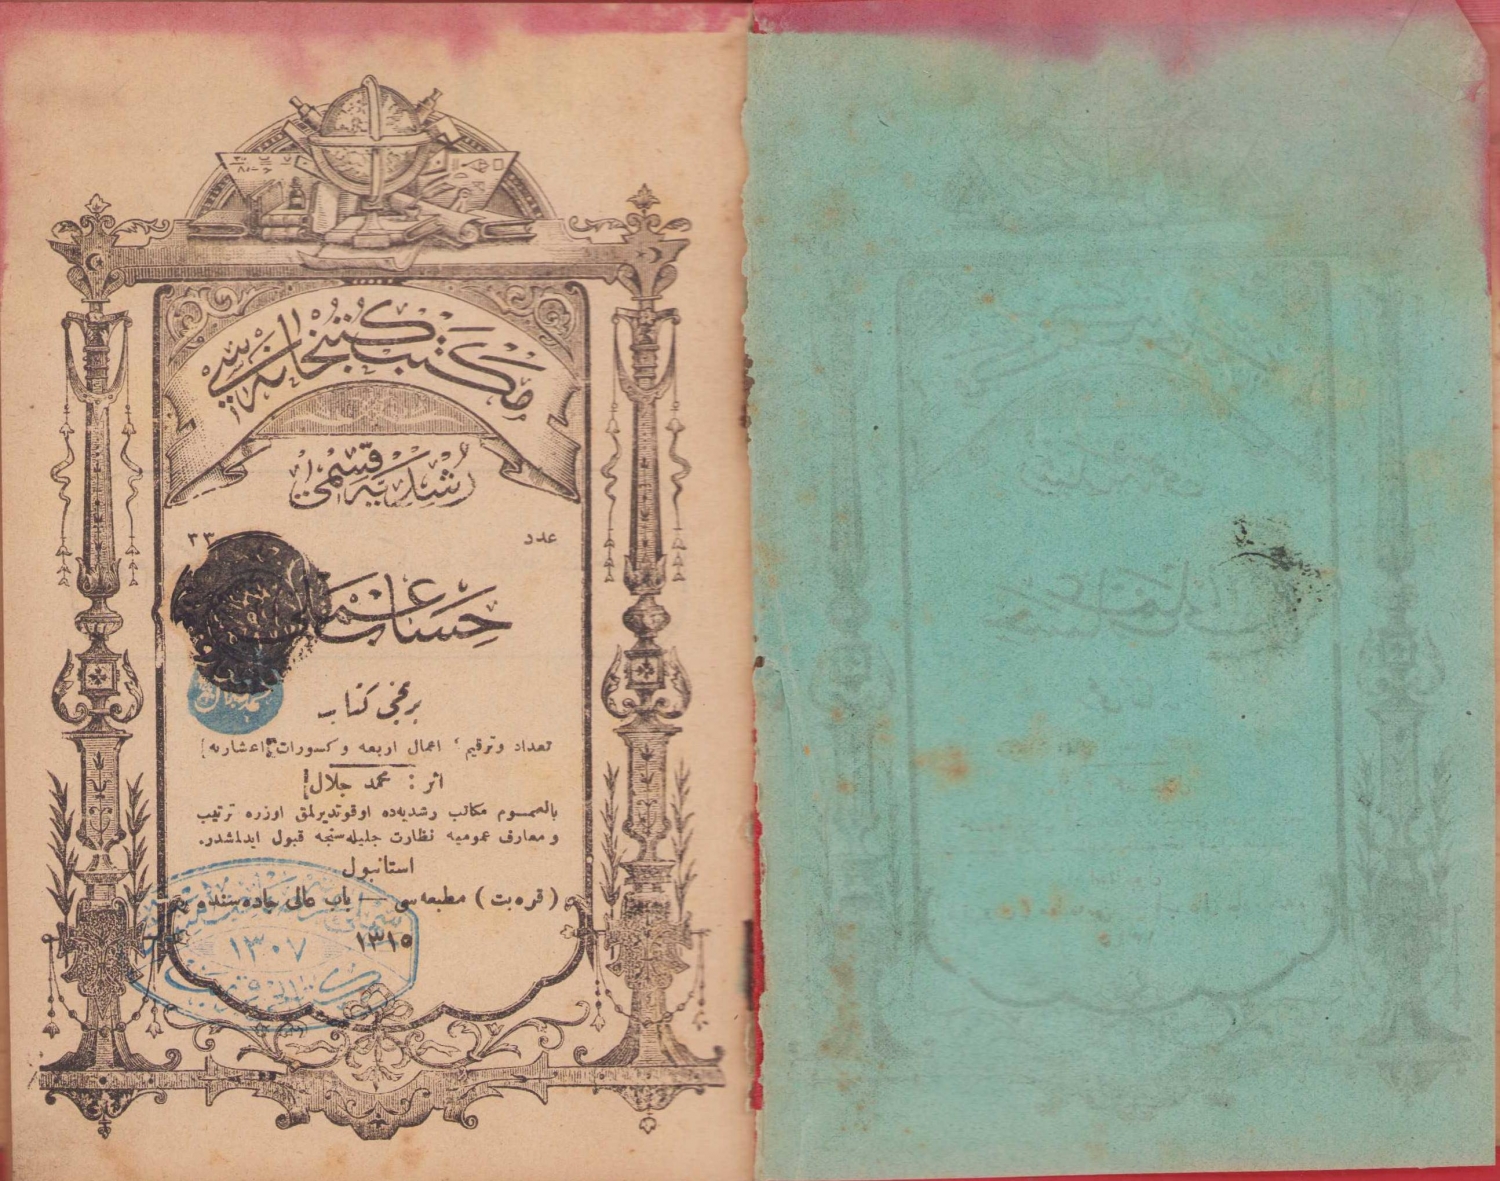 مكتب كتبخانه‌سی
رشدیه قسمی
عدد ٣٣
حساب عملی
برنجی كتاب
تعداد وترقیم، اعمال اربعه وكسورات اعشاریه
اثر : محمد جلال
بالعموم مكاتب رشدیه‌ده اوقوتدیرلمق اوزره ترتیب
و معارف عمومیه نظارت جلیله‌سنجه قبول ایدلمشدر.
استانبول
(قره‌بت) مطبعه‌سی — باب عالی جاده‌سنده
١٣١٥
١٣٠٧